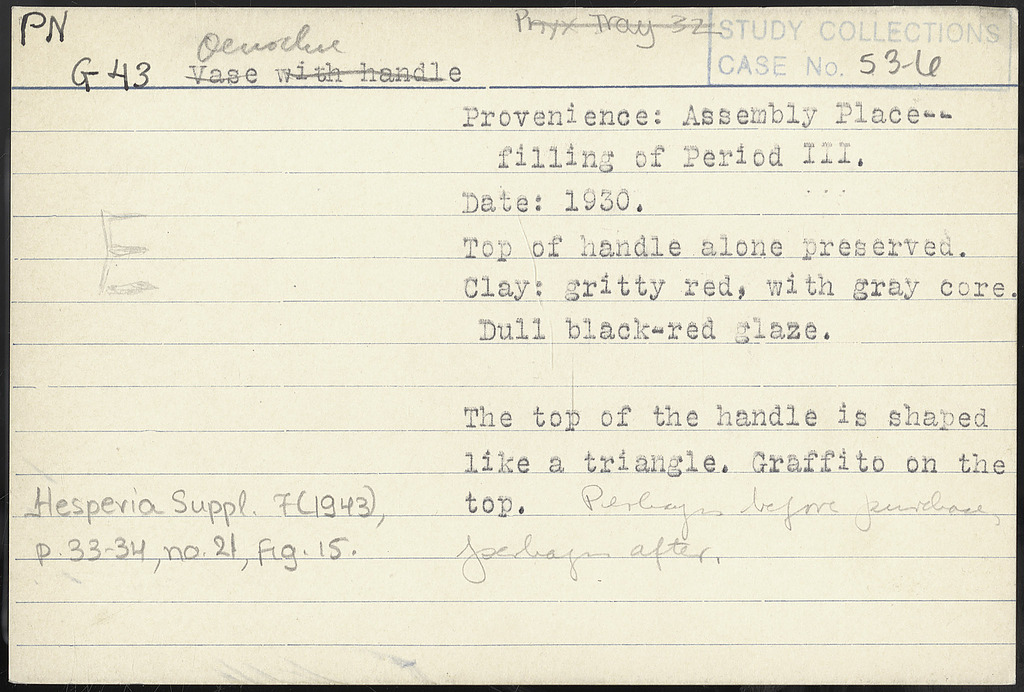 PN
Pnyx Tray 32
STUDY COLLECTIONS
CASE No. 53-6
Oenochoe
G 43 Vase with handle
Provenience: Assembly Place--
filling of Period III.
Date: 1930.
E
Top of handle alone preserved.
Clay: gritty red, with gray core.
Dull black-red glaze.
The top of the handle is shaped
like a triangle. Graffito on the
top. Perhaps before purchase,
perhaps after.
Hesperia Suppl. 7(1943),
p. 33-34, no. 21, fig. 15.